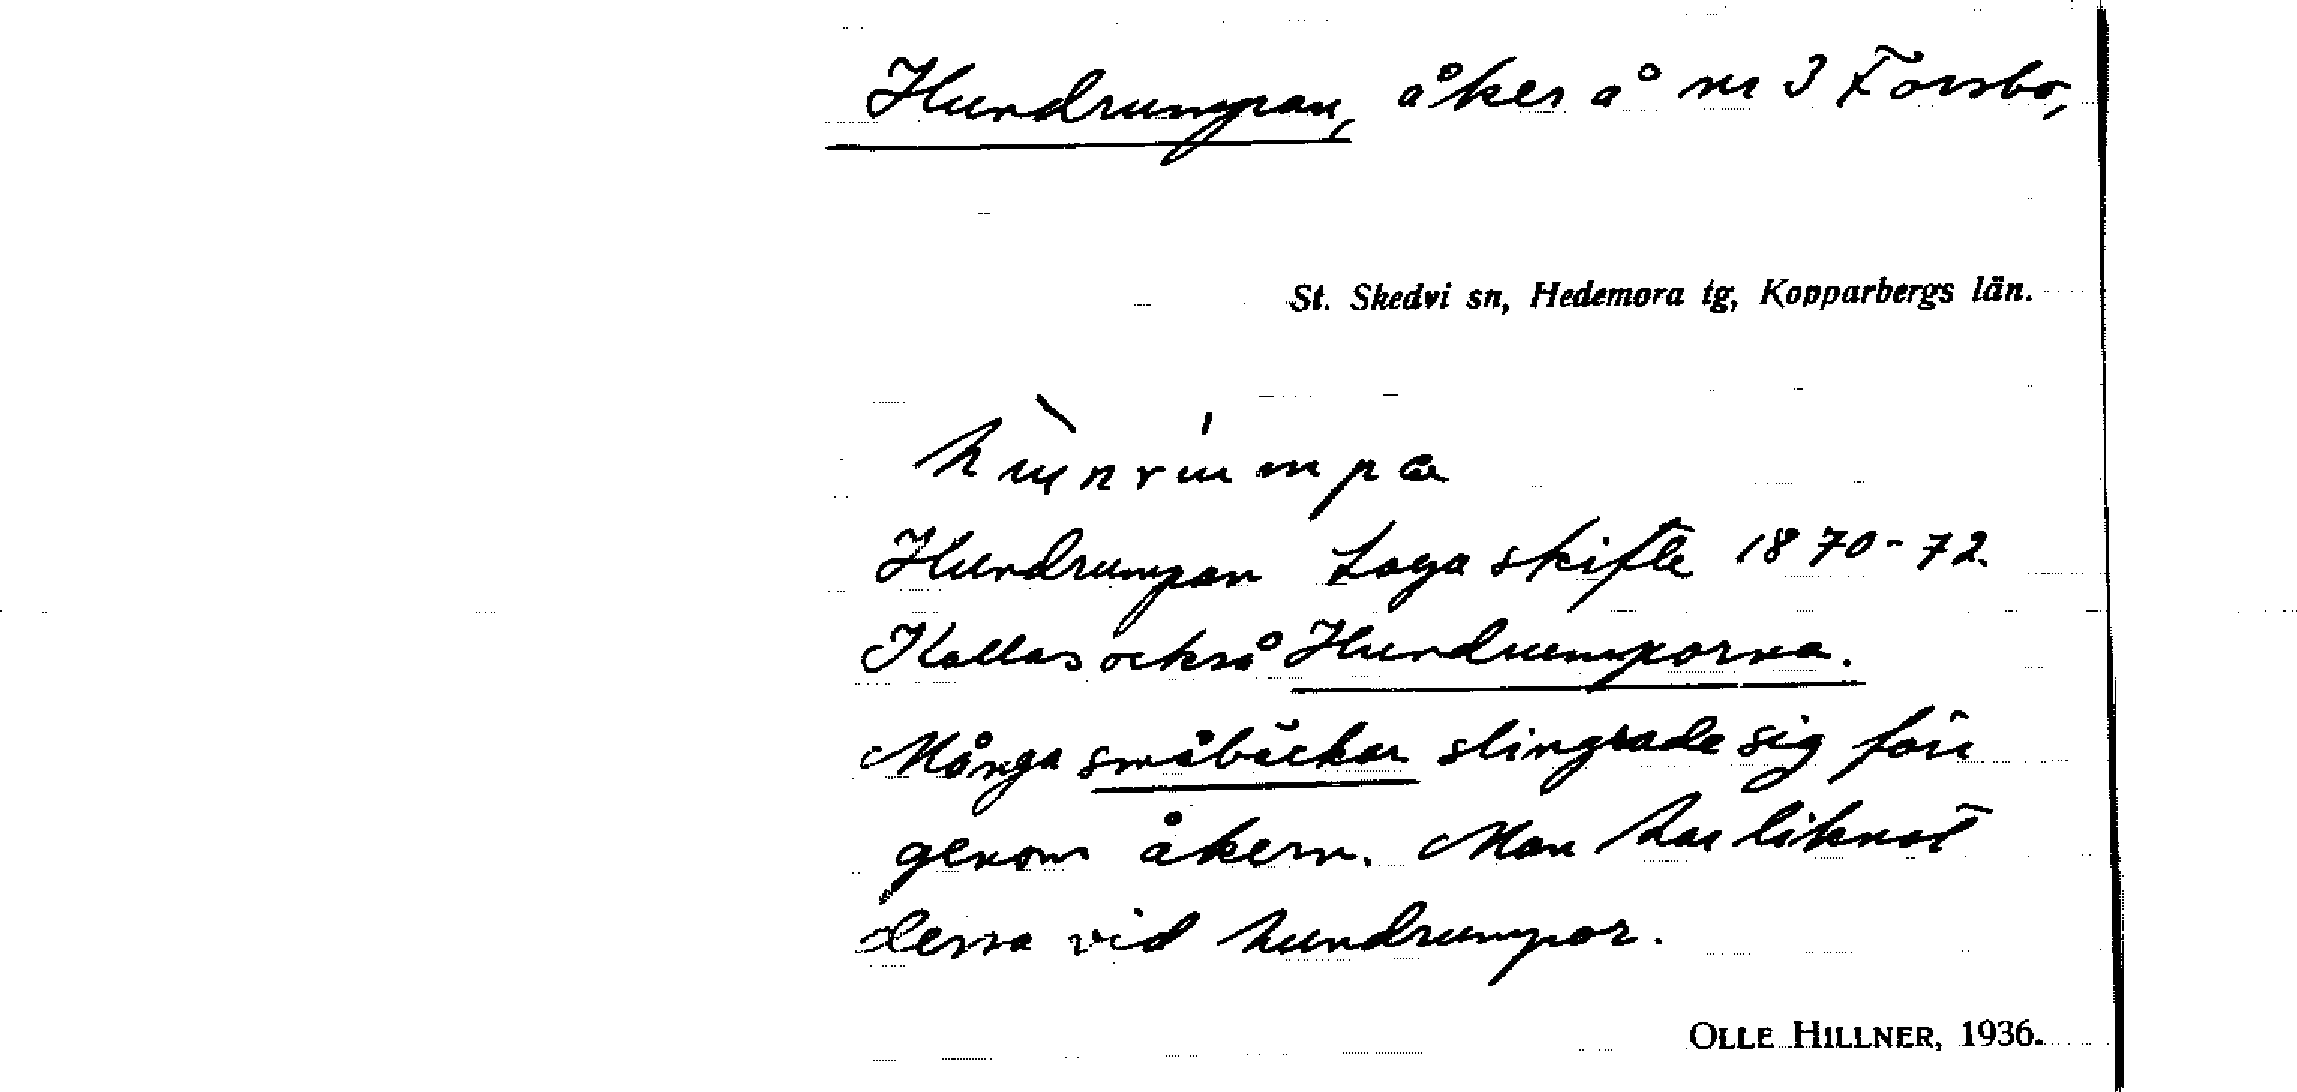 Hundrumpan, åker å nr 3 Forsbo,
St. Skedvi sn, Hedemora tg, Kopparbergs län.
hùnrúmpa
Hundrumpan Laga skifte 1870-72.
Kallas också Hundrumporna.
Många småbäckar slingrade sig förr
genom åkern. Man har liknat
dessa vid hundrumpor.
OLLE HILLNER, 1936.